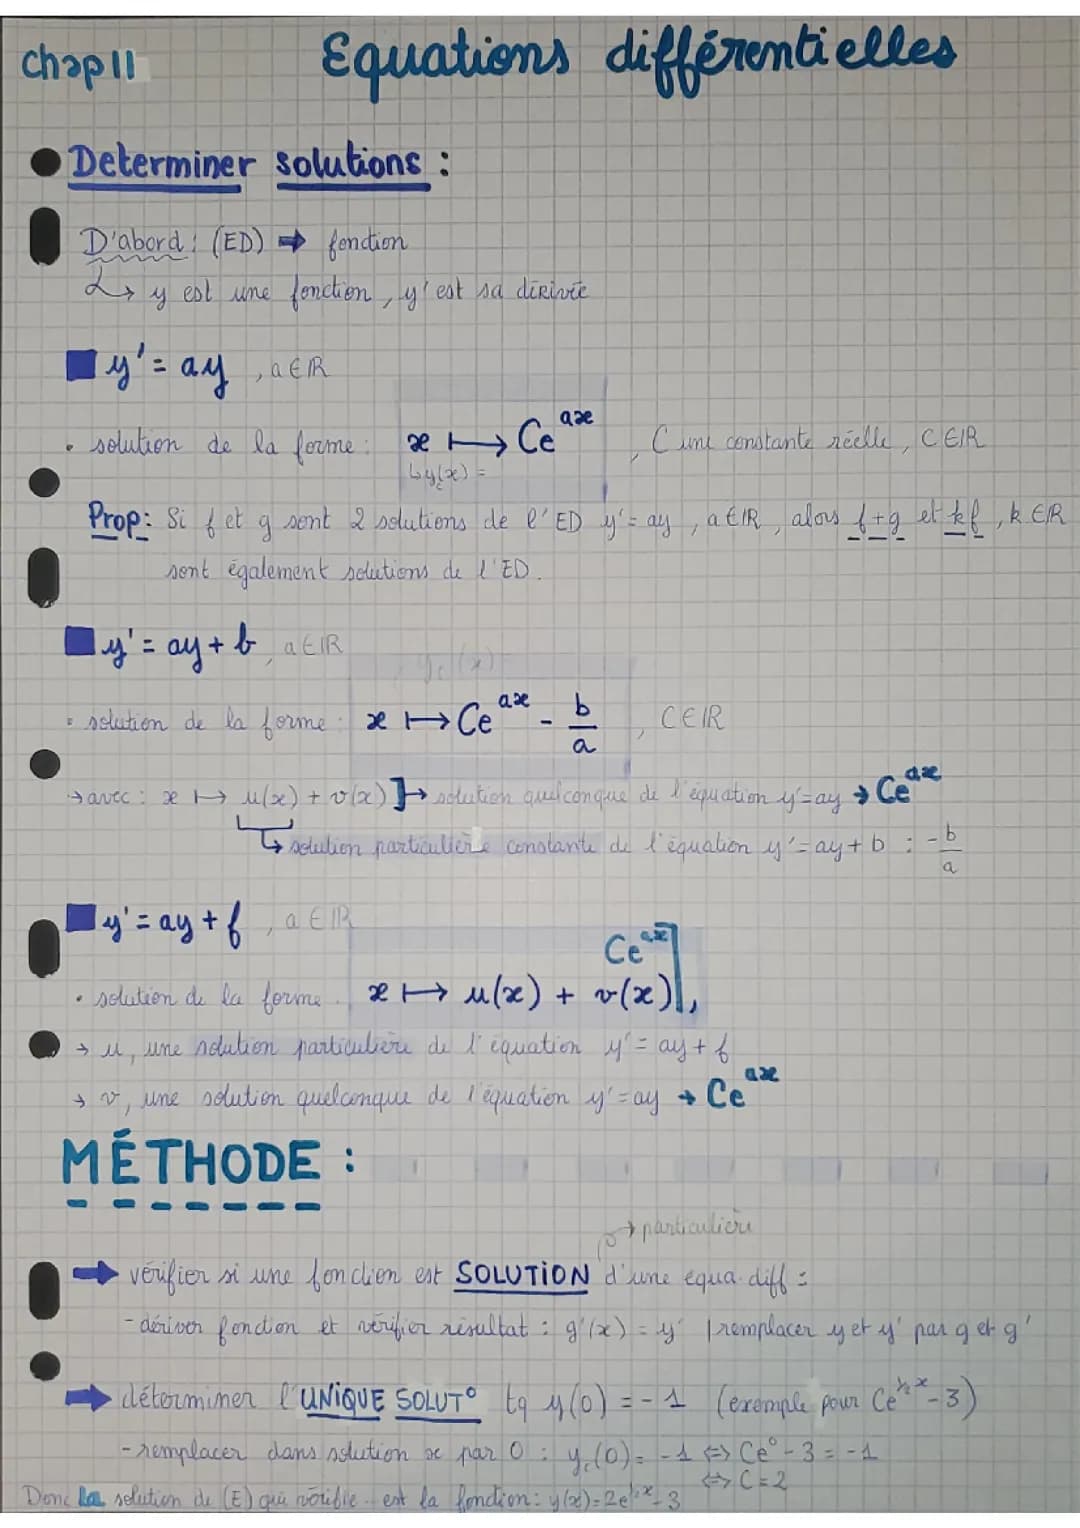 Chap 11 Equations différentielles
Determiner solutions :
D'abord : (ED) → fonction
↳ y est une fonction, y' est sa dérivée
y' = ay , a ∈ ℝ
• solution de la forme : x ⟼ Ce^{ax} , C une constante réelle, C ∈ ℝ
↳ y_c(x) =
Prop : Si f et g sont 2 solutions de l'ED y' = ay , a ∈ ℝ , alors f+g et kf , k ∈ ℝ
sont également solutions de l'ED.
y' = ay + b , a ∈ ℝ
y_c(x) =
• solution de la forme : x ⟼ Ce^{ax} - b/a , C ∈ ℝ
→ avec : x ⟼ u(x) + v(x) ]→ solution quelconque de l'équation y'=ay → Ce^{ax}
↳ solution particulière constante de l'équation y' = ay + b : -b/a
y' = ay + f , a ∈ ℝ
Ce^{ax}
• solution de la forme : x ⟼ u(x) + v(x) ,
→ u, une solution particulière de l'équation y' = ay + f
→ v, une solution quelconque de l'équation y' = ay → Ce^{ax}
MÉTHODE :
→ particulière
→ vérifier si une fonction est SOLUTION d'une équa. diff :
- dériver fonction et vérifier résultat : g'(x) = y' | remplacer y et y' par g et g'
→ déterminer l'UNIQUE SOLUT° tq y(0) = -1 (exemple pour Ce^{1/2 x} - 3)
- remplacer dans solution x par 0 : y_c(0) = -1 ⇔ Ce⁰ - 3 = -1
⇔ C = 2
Donc la solution de (E) qui vérifie .. est la fonction : y(x) = 2e^{1/2 x} - 3